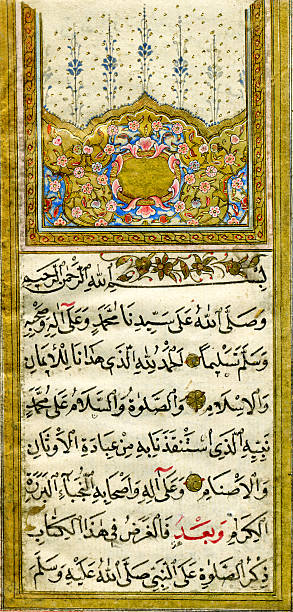 بِسْمِ اللهِ الرَّحْمٰنِ الرَّحِيمِ
وَصَلَّى اللهُ عَلَى سَيِّدِنَا مُحَمَّدٍ وَعَلَى آلِهِ وَصَحْبِهِ
وَسَلَّمَ تَسْلِيمًا اَلْحَمْدُ لِلّٰهِ الَّذِي هَدَانَا لِلْاِيمَانِ
وَالْاِسْلَامِ وَالصَّلٰوةُ وَالسَّلَامُ عَلَى مُحَمَّدٍ
نَبِيِّهِ الَّذِي اسْتَنْقَذَنَا بِهِ مِنْ عِبَادَةِ الْاَوْثَانِ
وَالْاَصْنَامِ وَعَلَى آلِهِ وَاَصْحَابِهِ النُّجَبَاءِ الْبَرَرَةِ
الْكِرَامِ وَبَعْدُ فَالْغَرَضُ فِي هٰذَا الْكِتَابِ
ذِكْرُ الصَّلٰوةِ عَلَى النَّبِيِّ صَلَّى اللهُ عَلَيْهِ وَسَلَّمَ